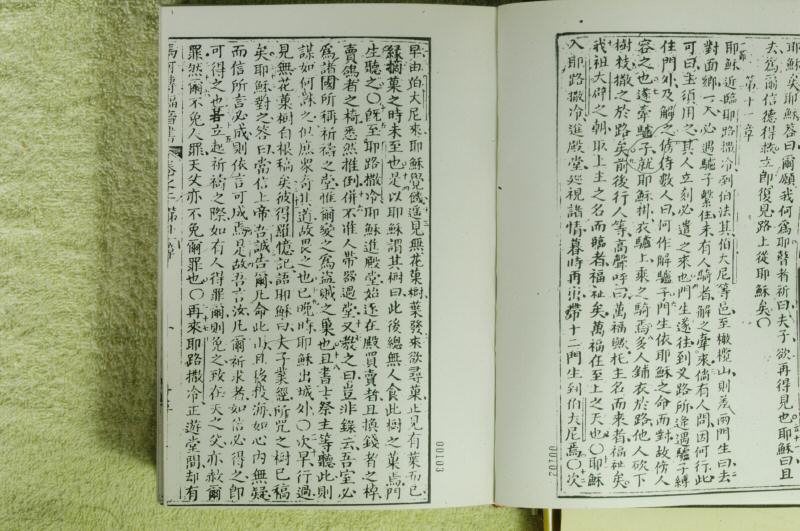 耶穌矣耶穌答曰爾願我何為耶瞽者祈曰夫子欲再得見也耶穌曰且
去為爾信德得救立即復見路上從耶穌矣〇
第十一章
耶穌近臨耶路撒冷到伯法其伯大尼等邑至橄欖山則差兩門生曰去
對面鄉一入必遇驢子繫住未有人騎者解之牽來倘有人問因何行此
可曰主須用之其人立刻必遣之來也門生遂往到叉路所逢遇驢子縛
住門外及解之傍侍數人曰何作解驢子門生依耶穌之命而對故傍人
容之也遂牽驢子就耶穌掛衣驢上乘之騎焉多人鋪衣於路他人砍下
樹枝撒之於路矣前後行人等高聲呼曰萬福托主名而來者福祉矣
我祖大辟之朝取上主之名而臨者福祉矣萬福在至上之天也〇耶穌
入耶路撒冷進殿堂巡視諸情暮時再出帶十二門生到伯大尼焉〇次
00102
早由伯大尼來耶穌覺饑遙見無花菓樹葉發來欲尋菓止見有葉而已
緣摘菓之時未至也是以耶穌謂其樹曰此後總無人食此樹之菓焉門
生聽之〇既至耶路撒冷耶穌進殿堂始逐在殿買賣者且換錢者之棹
賣鴿者之椅悉然推倒併不准人帶器過堂又教之曰豈非錄云吾室必
為諸國所稱祈禱之堂惟爾變之為盜賊之巢也且書士祭主等聽此則
謀如何誅之但庶眾奇其道故畏之也已晚時耶穌出城外〇次早行過
見無花菓樹自根稿矣彼得羅憶記語耶穌曰夫子葉經所咒之樹已稿
矣耶穌對之答曰當信上帝吾誠告爾凡命此山且移投海如心內無疑
而信所言必成則依言可成焉是故吾言汝凡爾祈求者如信必得之即
可得之也甚立起祈禱之際如有人得罪爾則免之致在天之父亦赦爾
罪然爾不免人罪天父亦不免爾罪也〇再來耶路撒冷正遊堂間却有
馬可傳福音書 卷之二 第十一章
00103